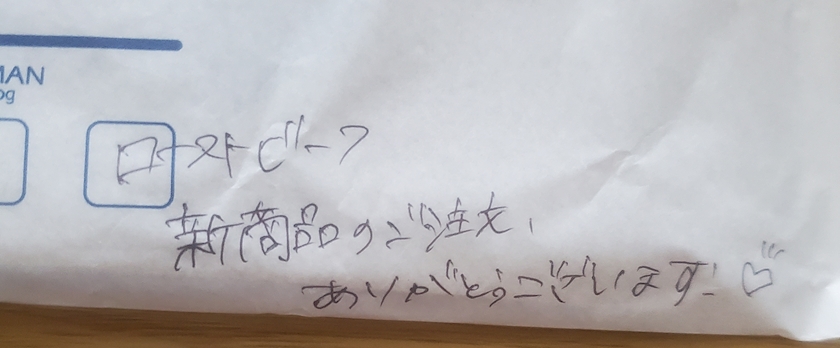 MAN
og
ローストビーフ
新商品のご注文、
ありがとうございます!♡